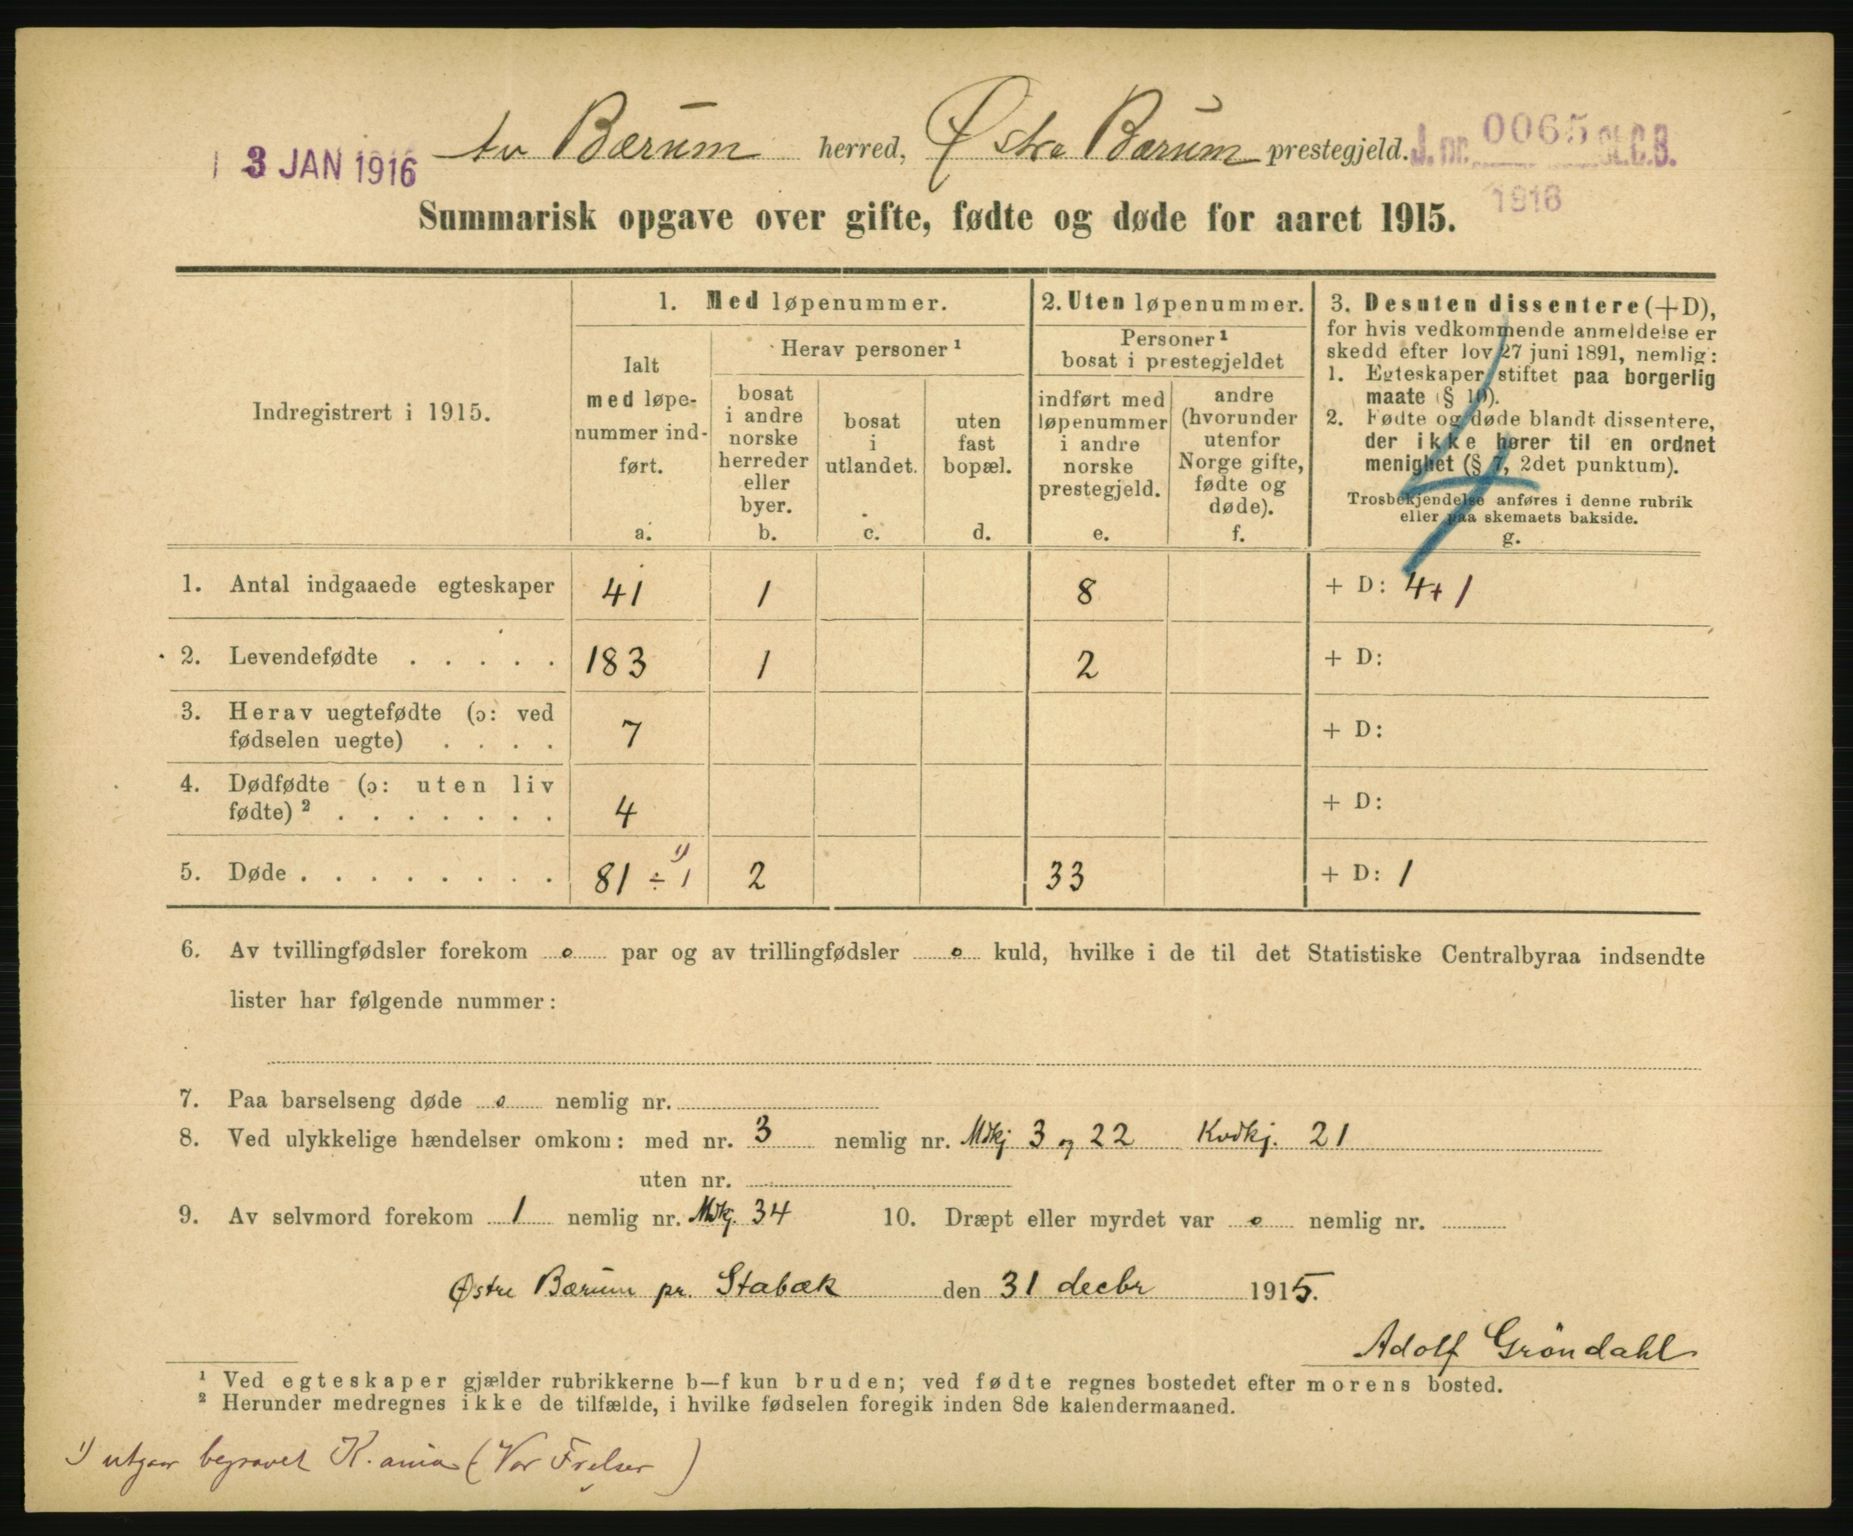 Av Bærum herred, Østre Bærum prestegjeld.
3 JAN 1916
J. nr. 0065 St.C.B.
1916
Summarisk opgave over gifte, fødte og døde for aaret 1915.
Indregistrert i 1915.
1. Med løpenummer.
Ialt
med løpe-
nummer ind-
ført.
a.
Herav personer¹
bosat
i andre
norske
herreder
eller
byer.
b.
bosat
i
utlandet.
c.
uten
fast
bopæl.
d.
2. Uten løpenummer.
Personer¹
bosat i prestegjeldet
indført med
løpenummer
i andre
norske
prestegjeld.
e.
andre
(hvorunder
utenfor
Norge gifte,
fødte og
døde).
f.
3. Desuten dissentere (+D),
for hvis vedkommende anmeldelse er
skedd efter lov 27 juni 1891, nemlig:
1. Egteskaper stiftet paa borgerlig
maate (§ 10).
2. Fødte og døde blandt dissentere,
der ikke hører til en ordnet
menighet (§ 7, 2det punktum).
Trosbekjendelse anføres i denne rubrik
eller paa skemaets bakside.
g.
1. Antal indgaaede egteskaper 41 1 8 + D: 4+1
2. Levendefødte . . . . . 183 1 2 + D:
3. Herav uegtefødte (ɔ: ved
fødselen uegte) . . . . 7 + D:
4. Dødfødte (ɔ: uten liv
fødte)² . . . . . . . 4 + D:
5. Døde . . . . . . . . 81 ÷ 1 ¹) 2 33 + D: 1
6. Av tvillingfødsler forekom o par og av trillingfødsler o kuld, hvilke i de til det Statistiske Centralbyraa indsendte
lister har følgende nummer:
7. Paa barselseng døde o nemlig nr.
8. Ved ulykkelige hændelser omkom: med nr. 3 nemlig nr. Mdkj 3 og 22 Kvdkj. 21
uten nr.
9. Av selvmord forekom 1 nemlig nr. Mdkj. 34 10. Dræpt eller myrdet var o nemlig nr.
Østre Bærum pr. Stabæk den 31 decbr 1915.
Adolf Gröndahl
¹ Ved egteskaper gjælder rubrikkerne b—f kun bruden; ved fødte regnes bostedet efter morens bosted.
² Herunder medregnes ikke de tilfælde, i hvilke fødselen foregik inden 8de kalendermaaned.
¹) utgaar begravet K.ania (Vor Frelser)